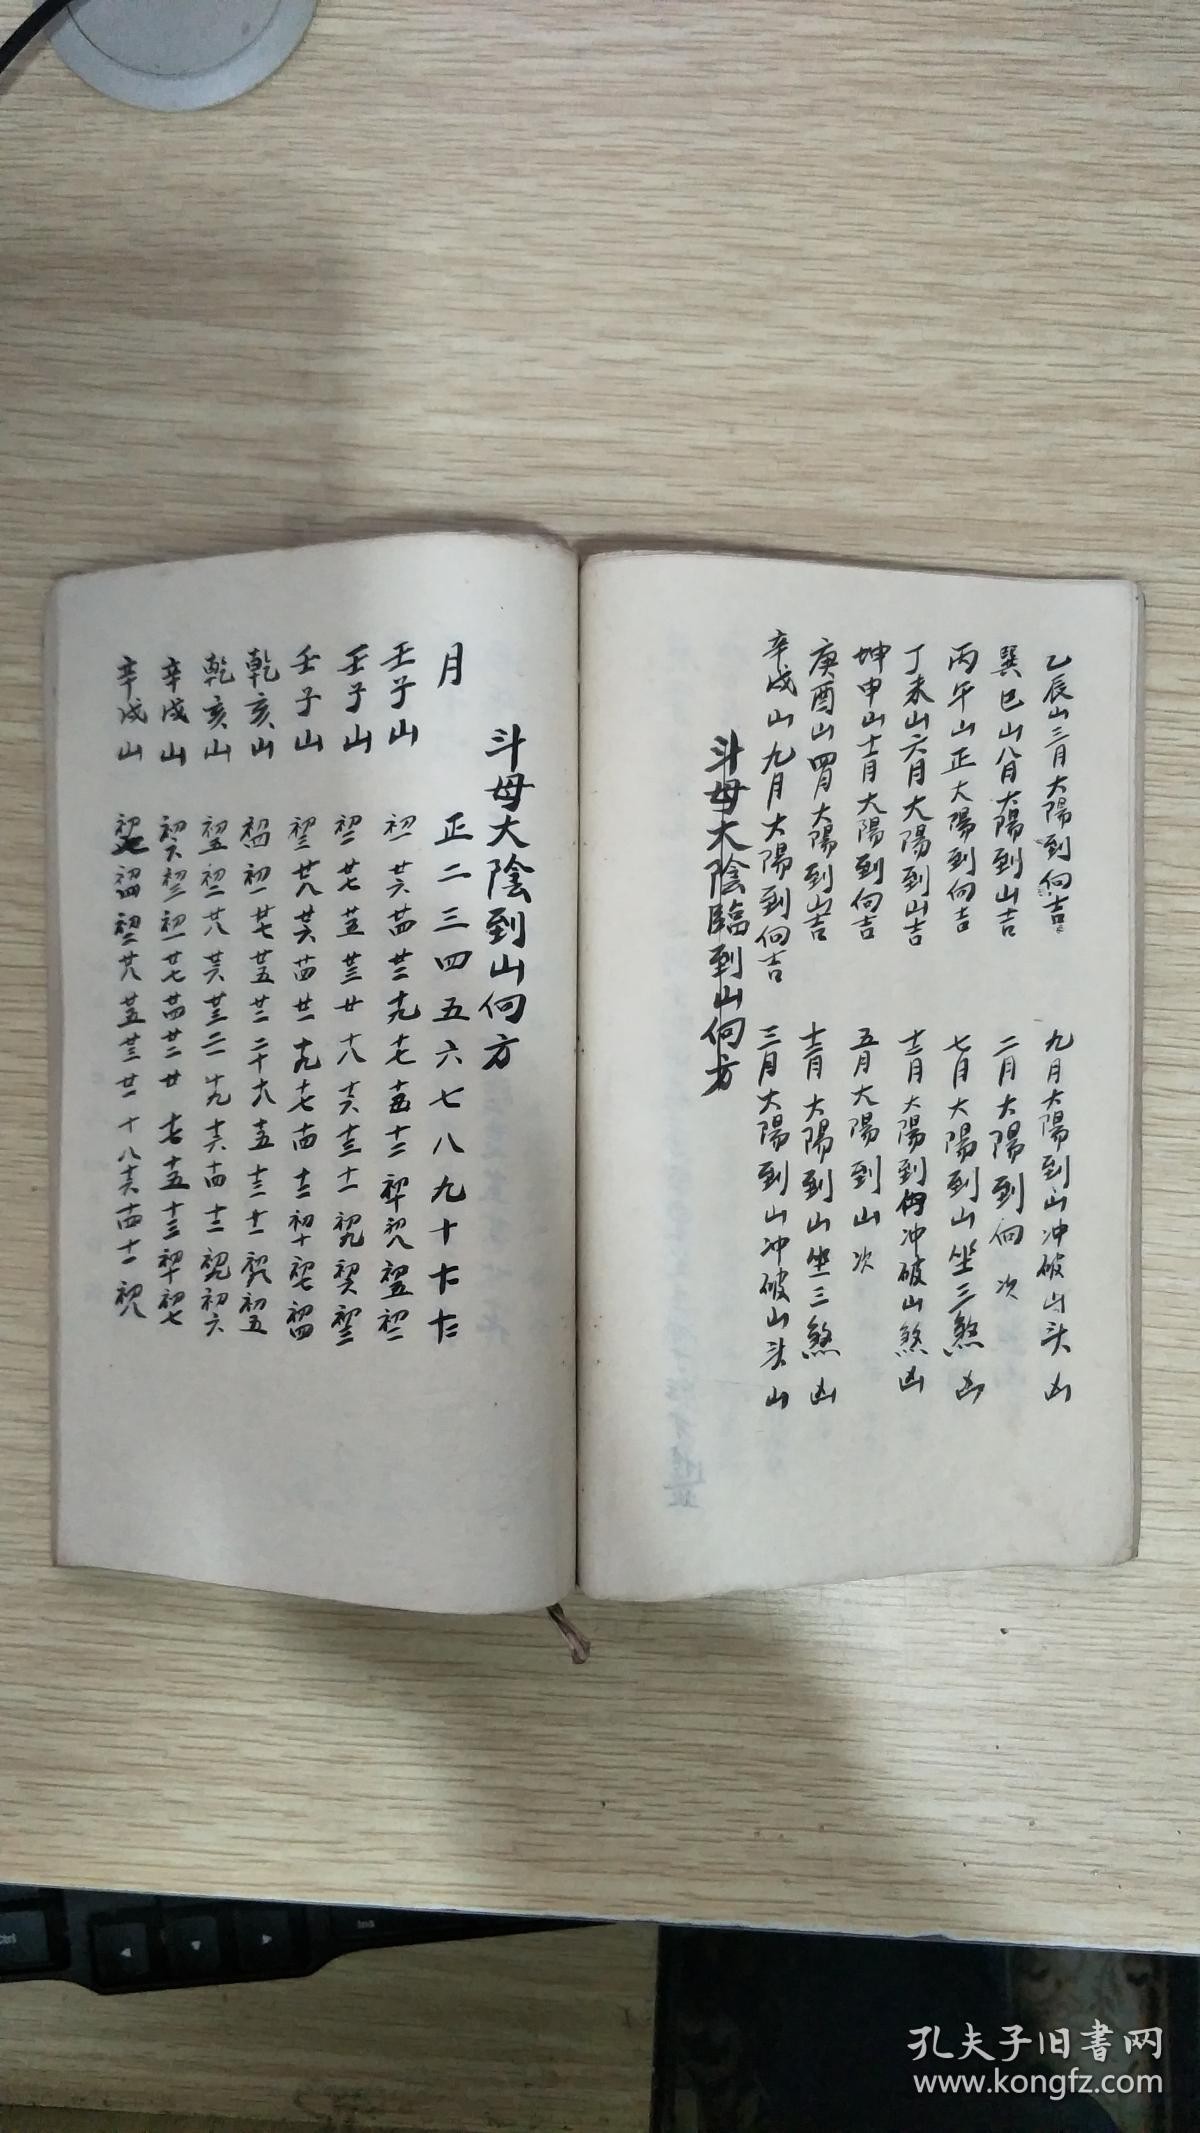 乙辰山三月太陽到向吉　九月太陽到山冲破山头凶
巽巳山八月太陽到山吉　二月太陽到向次
丙午山正太陽到向吉　七月太陽到山坐三煞凶
丁未山六月太陽到山吉　十二月太陽到向冲破山煞凶
坤申山十一月太陽到向吉　五月太陽到山次
庚酉山四月太陽到山吉　十二月太陽到山坐三煞凶
辛戌山九月太陽到向吉　三月太陽到山冲破山头山
斗母太陰臨到山向方
斗母太陰到山向方
月　正二三四五六七八九十十一十二
壬子山　初一廿六廿四廿二十九十七十五十二初十初八初五初二
壬子山　初二廿七廿五廿三廿十八十六十三十一初九初六初三
壬子山　初三廿八廿六廿四廿一十九十七十四十二初十初七初四
乾亥山　初四初一廿七廿五廿二二十十八十五十三十一初八初五
乾亥山　初五初二廿八廿六廿三二一十九十六十四十二初九初六
辛戌山　初六初三初一廿七廿四廿二廿十七十五十三初十初七
辛戌山　初七初四初二廿八廿五廿三廿一十八十六十四十一初八
Ctrl
Ins
孔夫子旧書网
www.kongfz.com